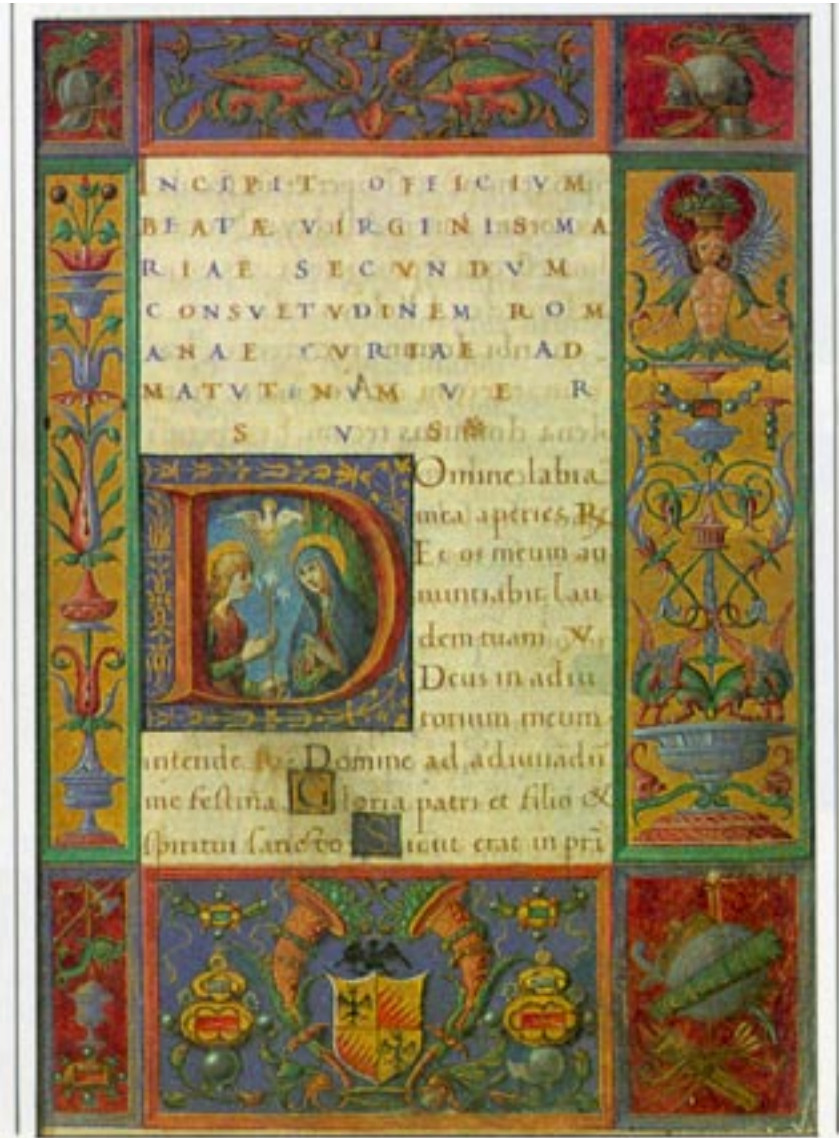 INCIPIT OFFICIVM
BEATÆ VIRGINIS MA
RIAE SECVNDVM
CONSVETVDINEM ROM
ANAE CVRIAE AD
MATVTINVM VER
SVS
Domine labia
mea aperies, ℟
Et os meum an
nuntiabit lau
dem tuam ℣
Deus in adiu
torium meum
intende ℟ Domine ad adiuuādū
me festina Gloria patri et filio &
spiritui sancto Sicut erat in prī